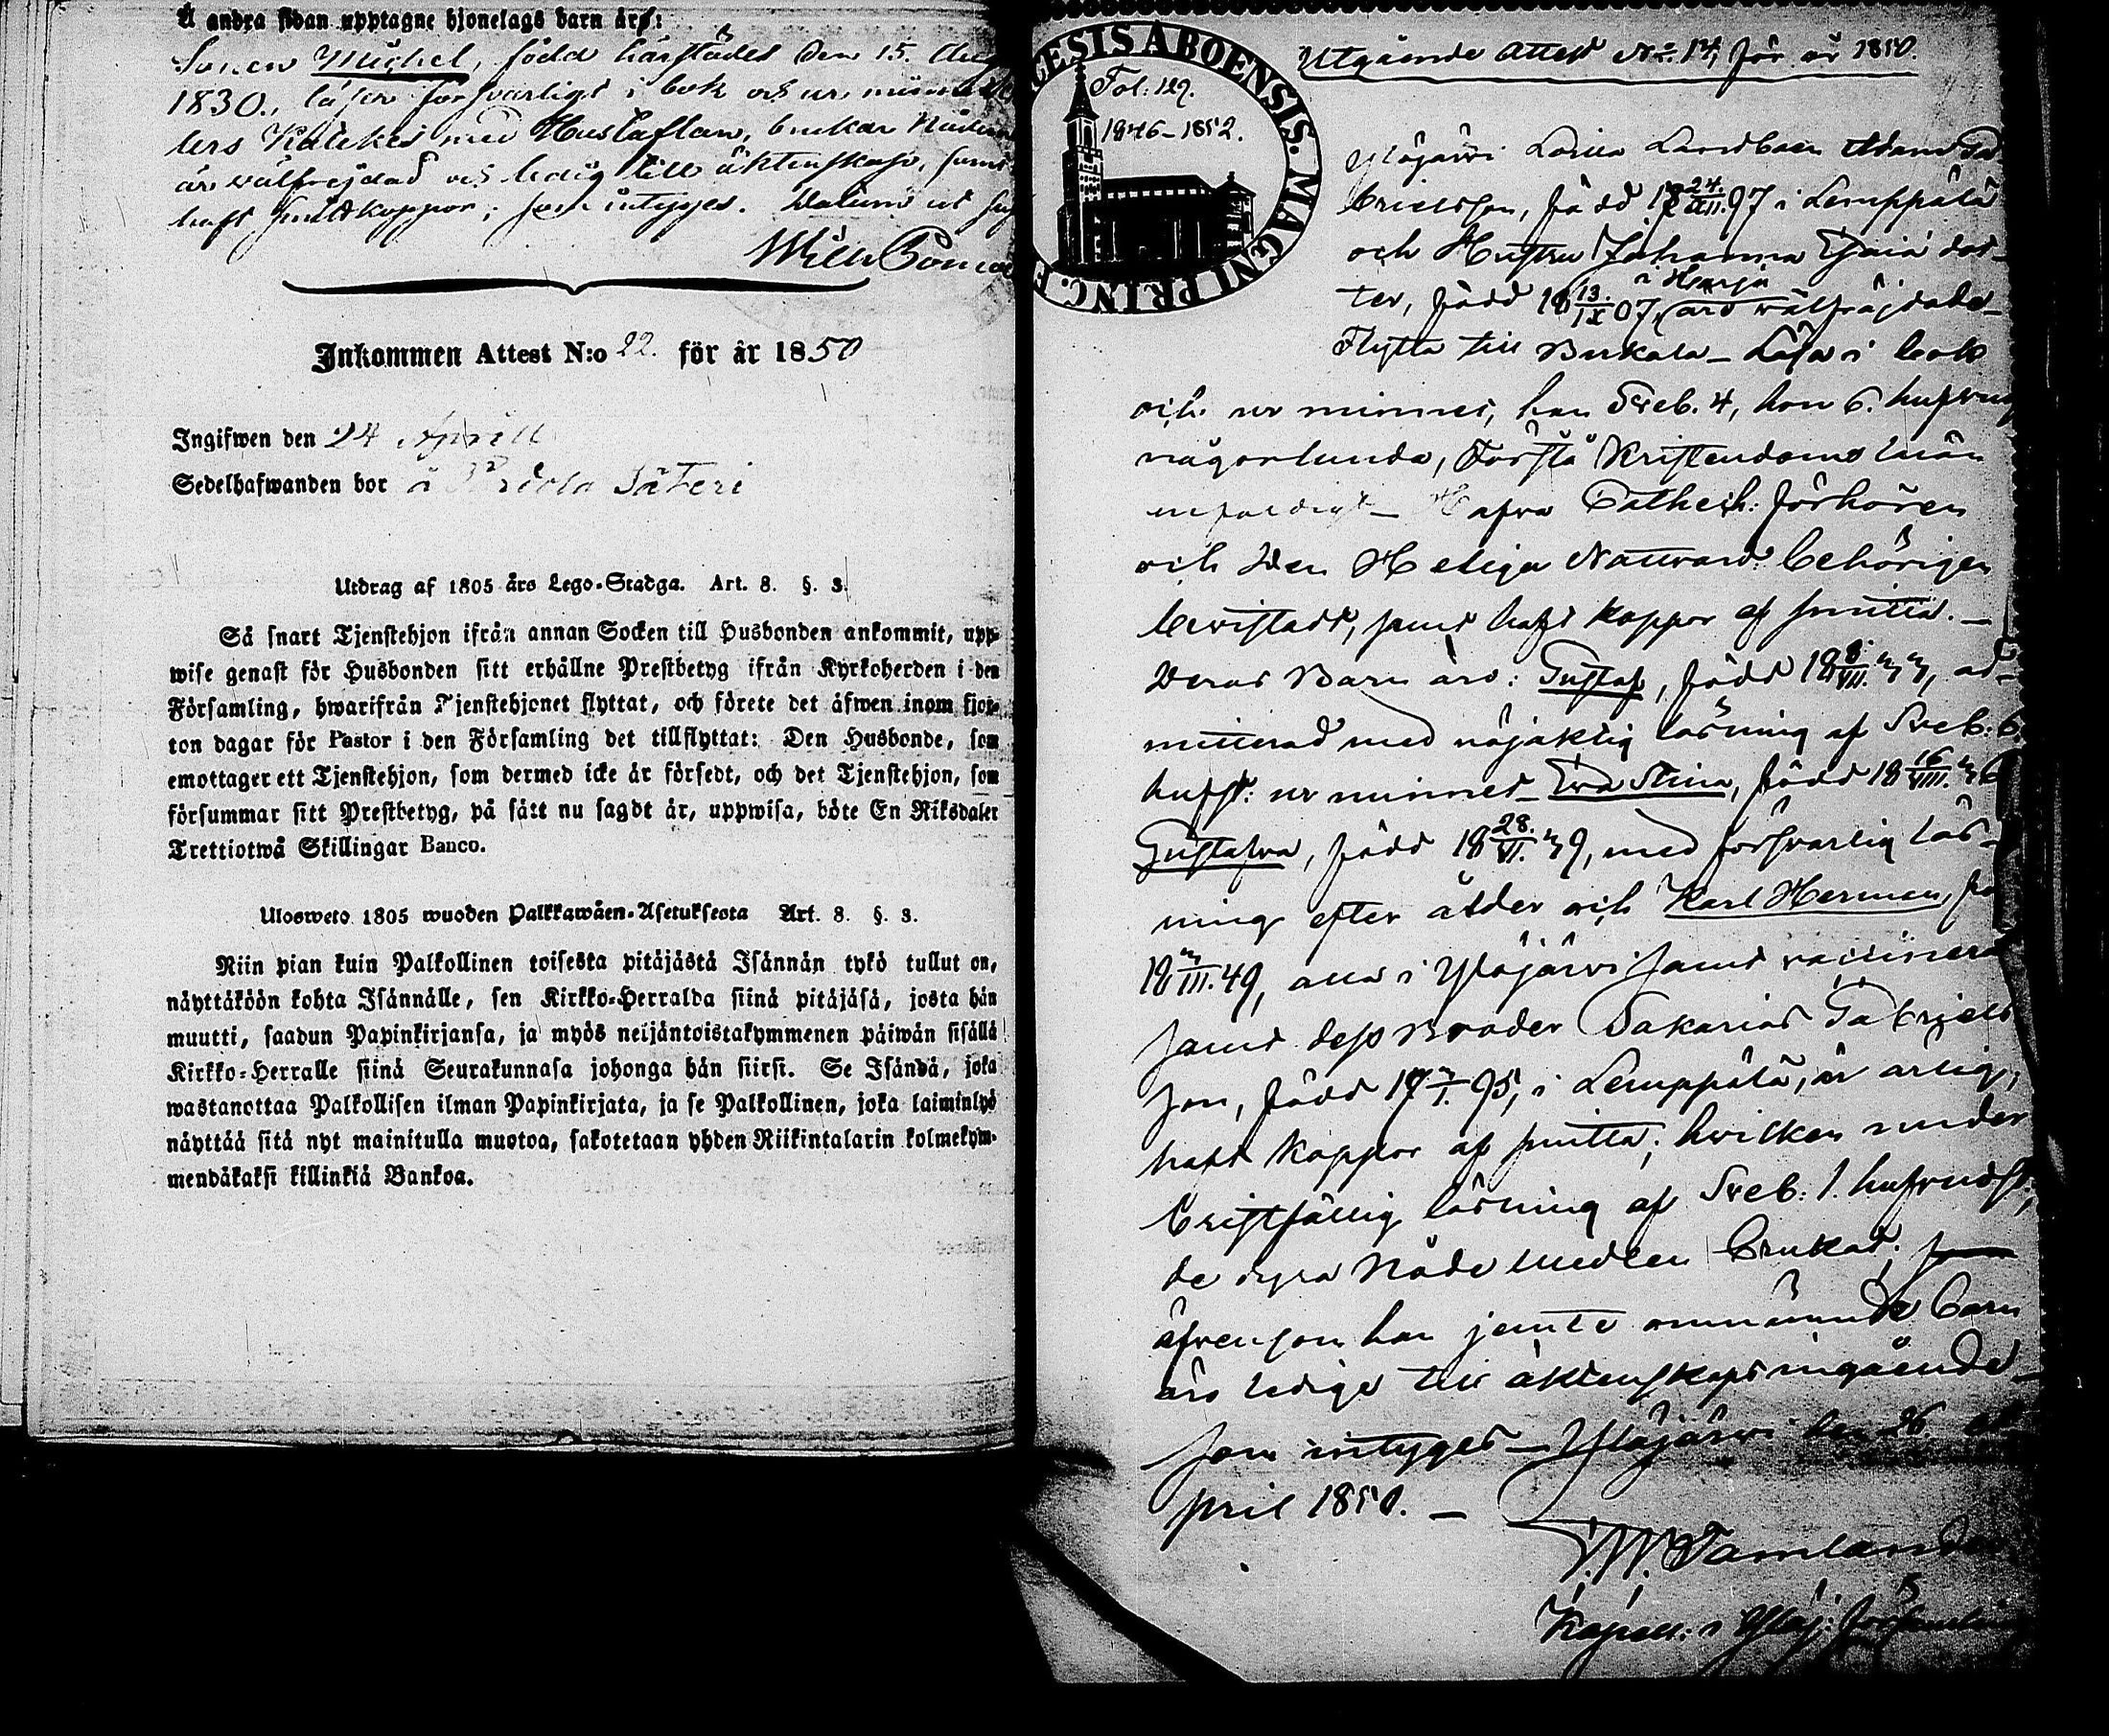 Å andra sidan upptagne hjonelags barn äro:
Sonen Michel, född härstädes den 15. Aug
1830., läser försvarligt i bok och ur minnet
lers Katekes med Hustaflan, brukar Nådem
är välfrejdad och ledig till äktenskap, samt
haft smittkoppor; som intygas. Datum ut sup
Wilh.
Inkommen Attest N:o 22. för år 1850
Ingifwen den 24 April
Sedelhafwanden bor å Säteri
Utdrag af 1805 års Lego-Stadga. Art. 8. §. 3.
Så snart Tjenstehjon ifrån annan Socken till Husbonden ankommit, upp-
wise genast för Husbonden sitt erhållne Prestbetyg ifrån Kyrkoherden i den
Församling, hwarifrån Tjenstehjonet flyttat, och förete det äfwen inom fjor-
ton dagar för Pastor i den Församling det tillflyttat: Den Husbonde, som
emottager ett Tjenstehjon, som dermed icke är försedt, och det Tjenstehjon, som
försummar sitt Prestbetyg, på sätt nu sagdt är, uppwisa, böte En Riksdaler
Trettiotwå Skillingar Banco.
Ulosweto 1805 wuoden Palkkawäen-Asetuksesta Art. 8. §. 3.
Niin pian kuin Palkollinen toisesta pitäjästä Isännän tykö tullut on,
näyttäköön kohta Isännälle, sen Kirkko-Herralda siinä pitäjäsä, josta hän
muutti, saadun Papinkirjansa, ja myös neljäntoistakymmenen päiwän sisällä
Kirkko-Herralle siinä Seurakunnasa johonga hän siirsi. Se Isändä, joka
wastanottaa Palkollisen ilman Papinkirjata, ja se Palkollinen, joka laiminlyö
näyttää sitä nyt mainitulla muotoa, sakotetaan yhden Riikintalarin kolmekym-
mendäkaksi killinkiä Bankoa.
Utgående Attest No 14, för år 1850.
CESIS ABOENSIS. MAGNI PRINC. F
Fol: 129.
1846–1852.
Ylöjärvi Landboen Adam Ga
brielsson, född 17 24./XII. 97 i Lemppälä
och Hustru Johanna Esaiä dot-
ter, född 18 13./IX 07, i Harju äro välfräjdade_
Flytta till Birkala_ Läsa i bok
och ur minnet, han Sveb. 4, hon 6. hufvud
någorlunda, Förstå Kristendoms läran
enfaldigt_ Hafva Cathech: förhören
och den Heliga Nattvard behörigen
bevistadt, samt haft koppor af smitta._
Deras Barn äro: Gustaf, född 18 8./VII. 33, ad-
mitterad med nöjaktig läsning af Sveb: 6.
hufst: ur minnet_ Eva Stina, född 18 16/VIII. 36
Gustafva, född 18 28./VI. 39, med försvarlig läs-
ning efter ålder och Karl Herman, fö
18 3/III. 49, alla i Ylöjärvi samt vaccinera
samt dess Broder Sakarias Gabriels
son, född 17 7/I. 95, i Lemppälä, är ärlig,
haft koppor af smitta; hvilken under
bristfällig läsning af Sveb: 1. hufvudst;
de dyra Nådemedlen brukat;
äfvensom han jemte omnämnde barn
äro ledige till äktenskaps ingående_
som intygas_ Ylöjärvi den 26 A
pril 1850. _
Tamlander
Kapell: i Ylöj: församling